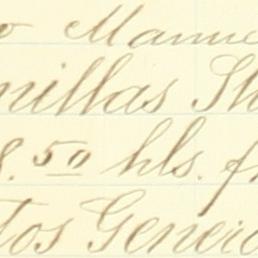 o Manue
nillas St
8.50 hls. f
tos Genera